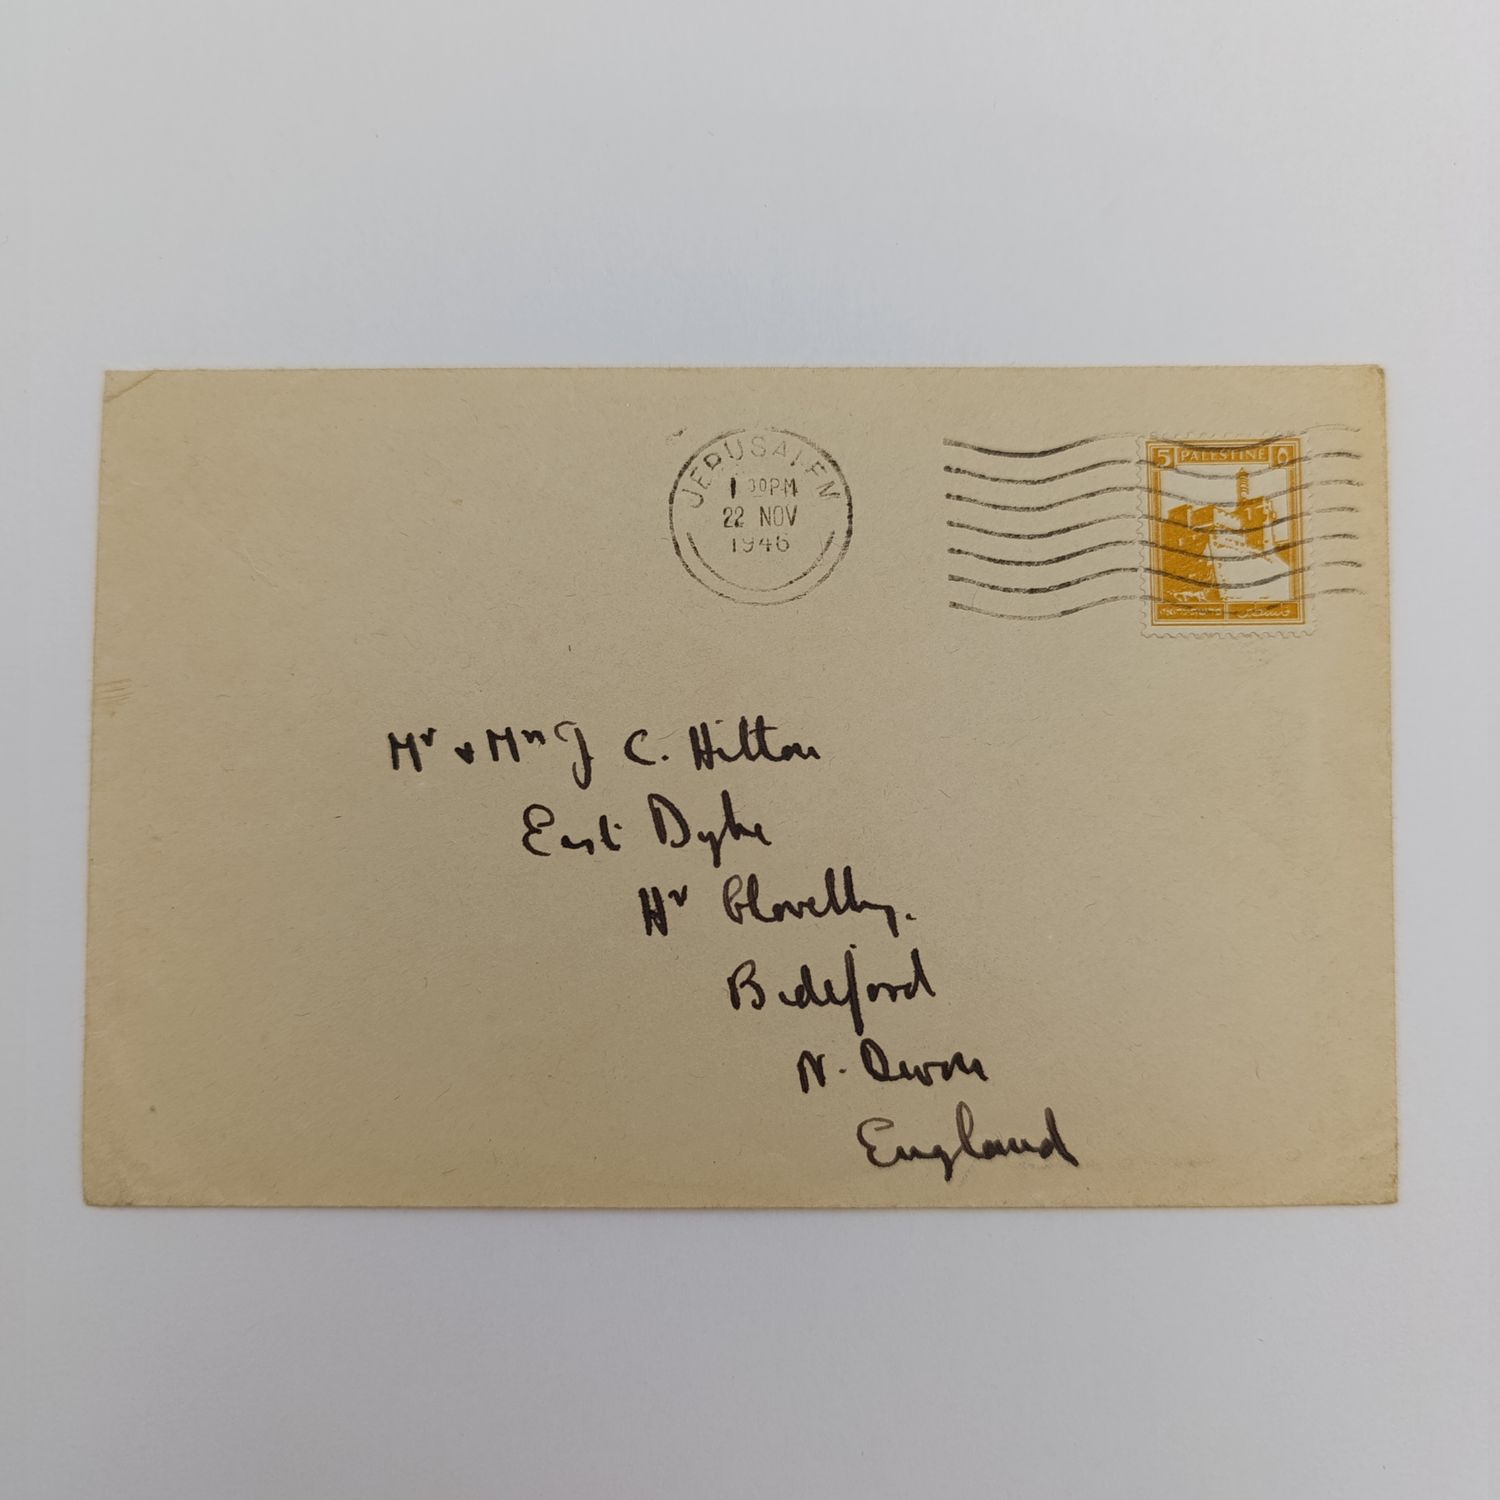 JERUSALEM
30PM
22 NOV
1946
5 PALESTINE ٥
فلسطين
Mr & Mrs J C. Hilton
East Dyke
Nr Clovelly.
Bideford
N. Devon
England